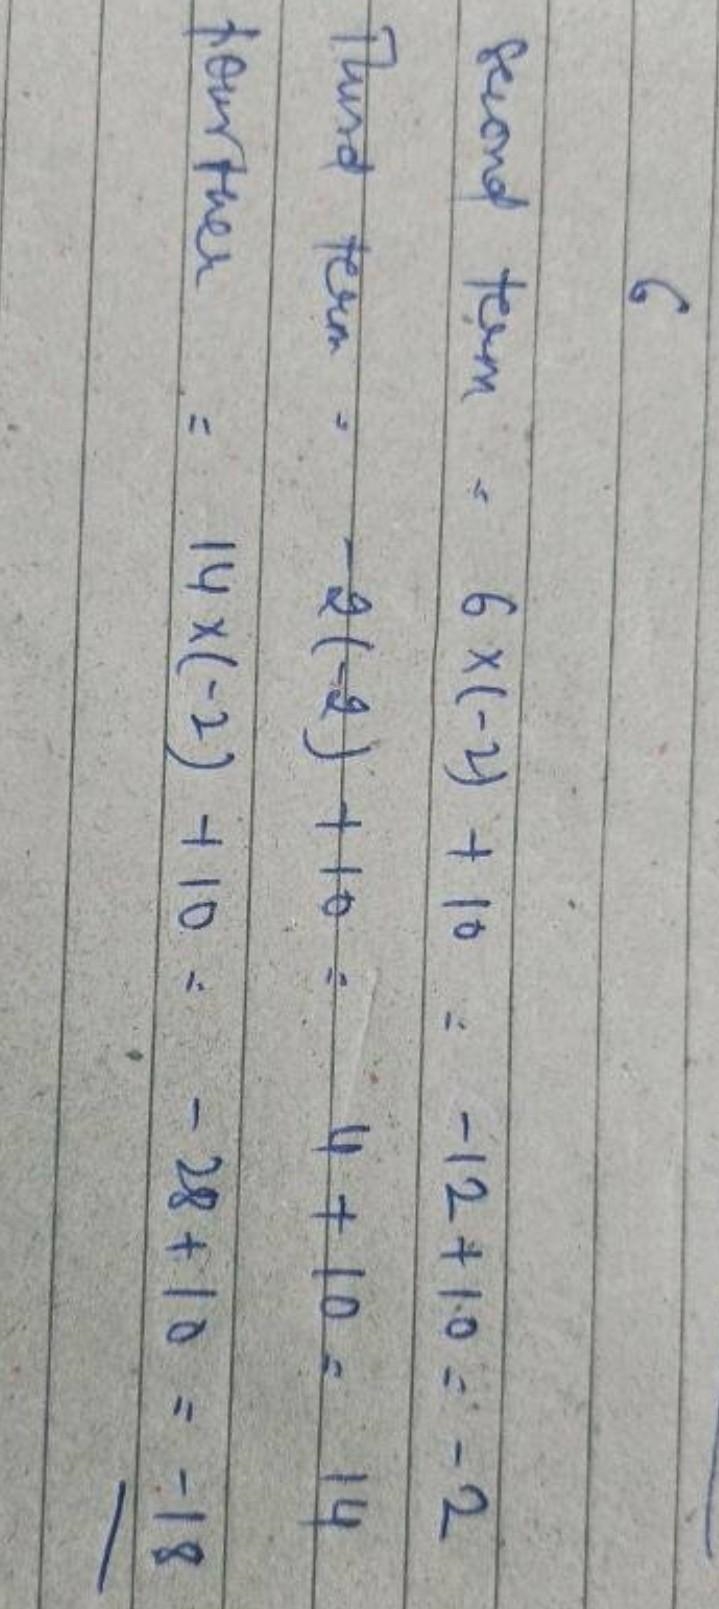 6
second term = 6 x (-2) + 10 = -12 + 10 = -2
Third term = -2(-2) + 10 = 4 + 10 = 14
= 14 x (-2) + 10 = -28 + 10 = -18